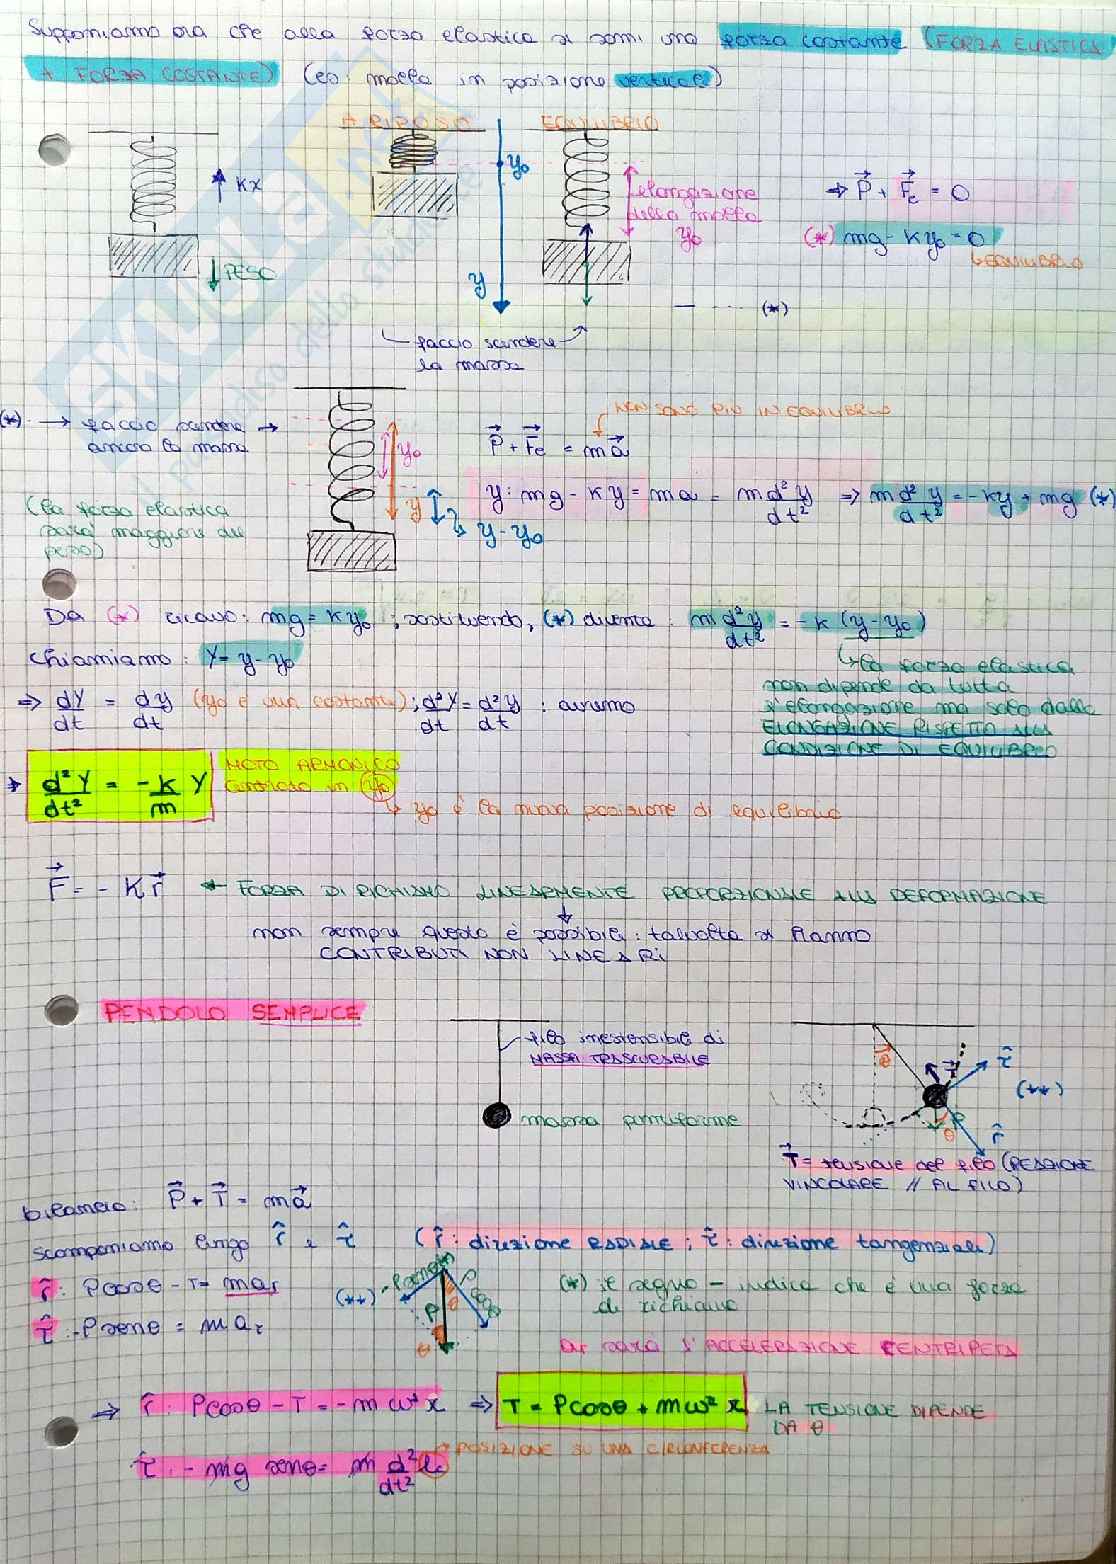 Supponiamo ora che alla forza elastica si sommi una forza costante (FORZA ELASTICA
+ FORZA COSTANTE) (es: molla in posizione verticale)
A RIPOSO
EQUILIBRIO
kx
PESO
y₀
y
elongazione
della molla
y₀
⇒ P⃗ + F⃗e = 0
(*) mg - ky₀ = 0
↳ EQUILIBRIO
(*)
faccio scendere
la massa
(*) → faccio scendere →
ancora la massa
(la forza elastica
sarà maggiore del
peso)
y₀
y
y - y₀
NON SONO PIÙ IN EQUILIBRIO
P⃗ + F⃗e = ma⃗
y: mg - ky = ma = m d²y/dt² ⇒ m d²y/dt² = -ky + mg (*)
Da (*) ricavo: mg = ky₀; sostituendo, (*) diventa: m d²y/dt² = -k (y-y₀)
Chiamiamo: Y = y-y₀
↳ la forza elastica
non dipende da tutta
l'elongazione ma solo dalla
ELONGAZIONE RISPETTO ALLA
CONDIZIONE DI EQUILIBRIO
⇒ dY/dt = dy/dt (y₀ è una costante); d²Y/dt = d²y/dt : avremo
→ d²Y/dt² = -k/m Y
MOTO ARMONICO
centrato in y₀
↳ y₀ è la nuova posizione di equilibrio
F⃗ = - K r⃗ ← FORZA DI RICHIAMO LINEARMENTE PROPORZIONALE ALLA DEFORMAZIONE
non sempre questo è possibile: talvolta si hanno
CONTRIBUTI NON LINEARI
PENDOLO SEMPLICE
filo inestensibile di
MASSA TRASCURABILE
massa puntiforme
θ
T⃗
τ̂
(**)
P
θ
r̂
T⃗ = tensione del filo (REAZIONE
VINCOLARE // AL FILO)
bilancio: P⃗ + T⃗ = ma⃗
scomponiamo lungo r̂ e τ̂ (r̂: direzione RADIALE; τ̂: direzione tangenziale)
r̂: Pcosθ - T = ma_r
τ̂: -Psenθ = ma_τ
(**)
Psenθ
P
θ
Pcosθ
θ
(*) il segno - indica che è una forza
di richiamo
ar sarà l'ACCELERAZIONE CENTRIPETA
⇒ r̂: Pcosθ - T = -mω²r ⇒ T = Pcosθ + mω²r LA TENSIONE DIPENDE
DA θ
τ̂: -mg senθ = m d²l/dt²
→ POSIZIONE SU UNA CIRCONFERENZA
SKUOLA.net
il paradiso dello studente